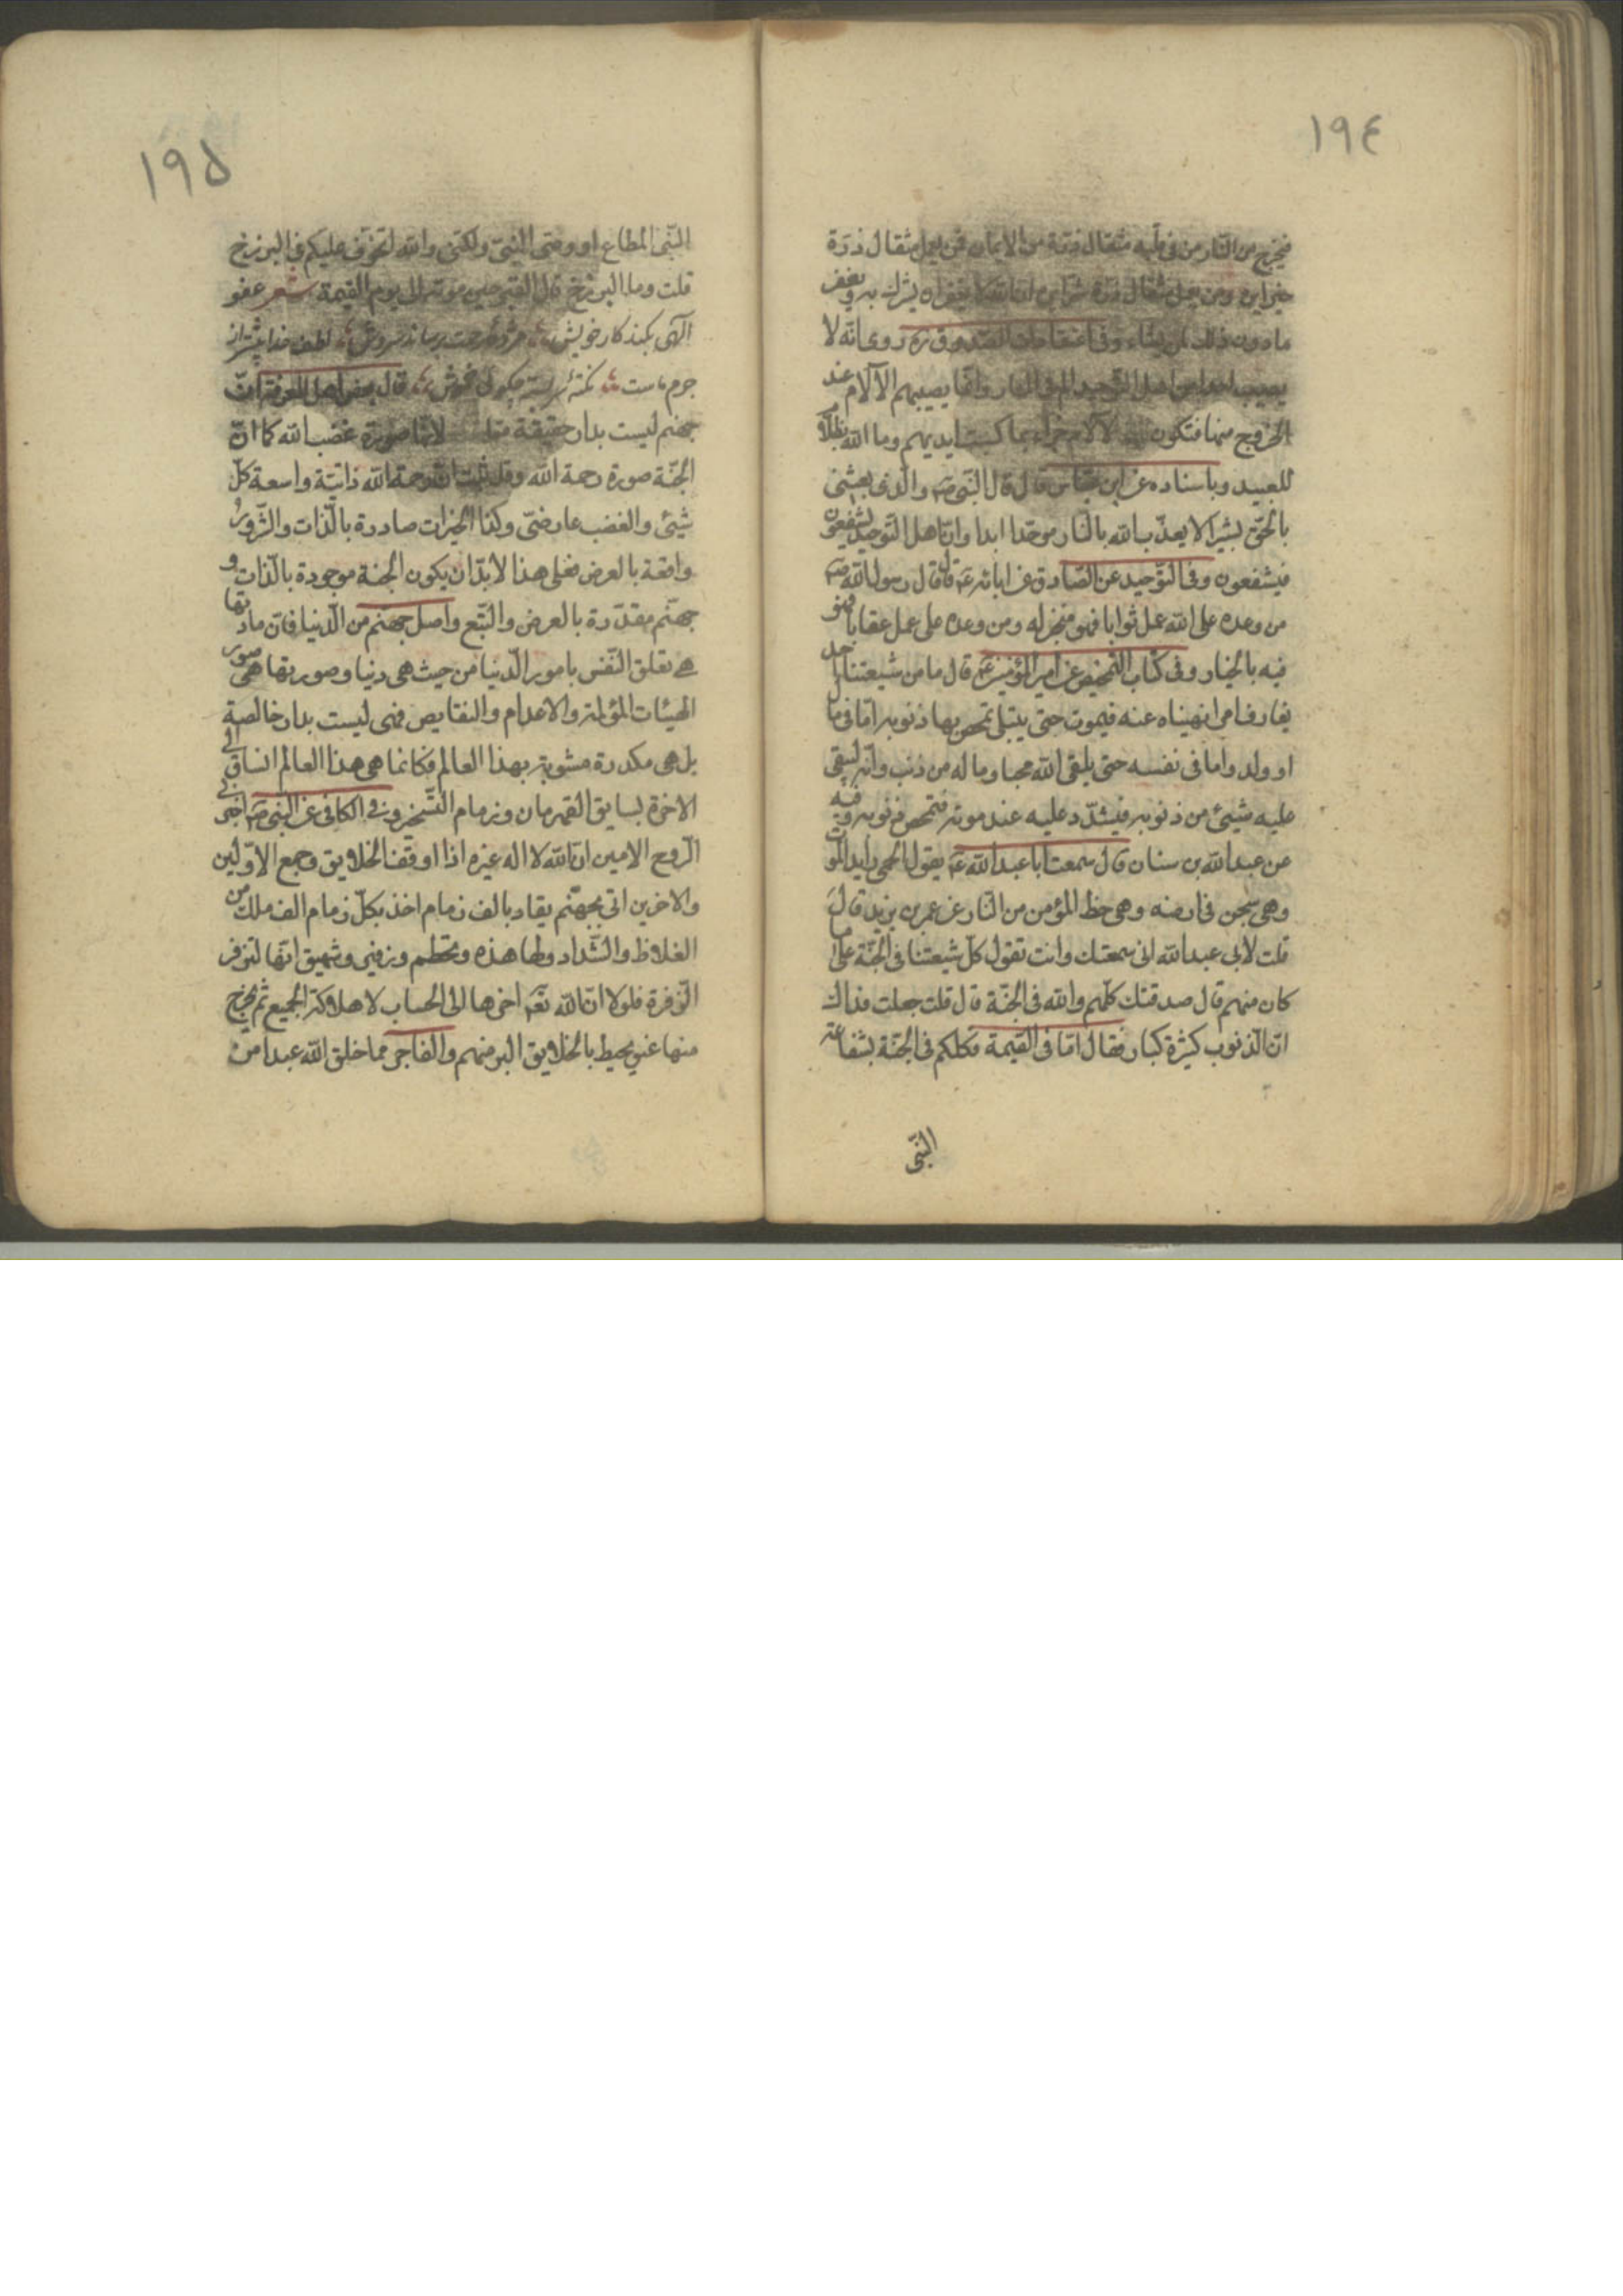 ١٩٤
فيخرج من النار من فى قلبه مثقال ذرة من الايمان فمن يعمل مثقال ذرة
خيرا يره ومن يعمل مثقال ذرة شرا يره ان الله لا يغفر ان يشرك به ويغفر
مادون ذلك لمن يشاء وفى اعتقادات الصدوق ره روى انّه لا
يصيب احدا من اهل التوحيد الم فى النار وانّما يصيبهم الآلام عند
الخروج منها فتكون الآلام جزاء بما كسبت ايديهم وما الله بظلّام
للعبيد وباسناده عن ابن عباس قال قال النّبى صم والّذى بعثنى
بالحقّ بشيرا لا يعذّب الله بالنّار موحّدا ابدا وانّ اهل التّوحيد ليشفعون
فيشفعون وفى التّوحيد عن الصّادق عن ابائه عم قال قال رسول الله صم
من وعده على الله عمل ثوابا فهو منجز له ومن وعده على عمل عقابا فهو
فيه بالخيار وفى كتاب التمحيص عن امير المؤمنين عم قال ما من شيعتنا احد
يقارف امرا نهيناه عنه فيموت حتى يبتلى تمحص بها ذنوبه امّا فى مال
او ولد واما فى نفسه حتى يلقى الله محبا وما له من ذنب وانّه ليبقى
عليه شيئ من ذنوبه فيشدّد عليه عند موته فتمحص ذنوبه وفيه
عن عبدالله بن سنان قال سمعت ابا عبد الله عم يقول الحمى رايد الموت
وهى سجن فى ارضه وهى حظ المؤمن من النّار عن عمر بن يزيد قال
قلت لأبى عبدالله انى سمعتك وانت تقول كلّ شيعتنا فى الجنّة على ما
كان منهم قال صدقتك كلّهم والله فى الجنّة قال قلت جعلت فداك
انّ الذنوب كثيرة كبار فقال امّا فى القيمة فكلكم فى الجنّة بشفاعة
النّبى
١٩۵
النّبى المطاع او وصى النبىّ ولكنّى والله اتخوّف عليكم فى البرزخ
قلت وما البرزخ قال القبر حين موته الى يوم القيمة شعر عفو
الهى بكند كار خويش مژده رحمت برساند سروش لطف خدا بيشتر از
جرم ماست نكته سربسته چه گوئى خموش قال بعض اهل المعرفة انّ
جهنم ليست بدار حقيقة لانّها صورة غضب الله كما انّ
الجنّة صورة رحمة الله وقد ثبت انّ رحمة الله ذاتيّة واسعة كلّ
شيئ والغضب عارضىّ وكذا الخيرات صادرة بالّذات والشّرور
واقعة بالعرض فعلى هذا لابدّ ان يكون الجنة موجودة بالّذات و
جهنّم مقدّرة بالعرض والتّبع واصل جهنم من الّدنيا فانّ مادّتها
هى تعلق النّفس بامور الّدنيا من حيث هى دنيا وصورتها هى صور
الهيئات المؤلمة والاعدام والنقايص فهى ليست بدار خالصة
بل هى مكدرة مشوبة بهذا العالم فكانما هى هذا العالم انساق الى
الاخرة لسايق القهرمان وزمام التّسخير وفى الكافى عن النّبى صم اخبرنى
الرّوح الامين انّ الله لا اله غيره اذا اوقف الخلايق وجمع الاوّلين
والاخرين اتى بجهنّم يقاد بالف زمام اخذ بكلّ زمام الف ملك من
الغلاظ والشّداد ولها هذه وتحطم وزفير وشهيق انّها لتزفر
الزفرة فلولا انّ الله تعم اخرها الى الحساب لاهلكت الجميع ثم يخرج
منها عنق يحيط بالخلايق البر منهم والفاجر مما خلق الله عبدا من